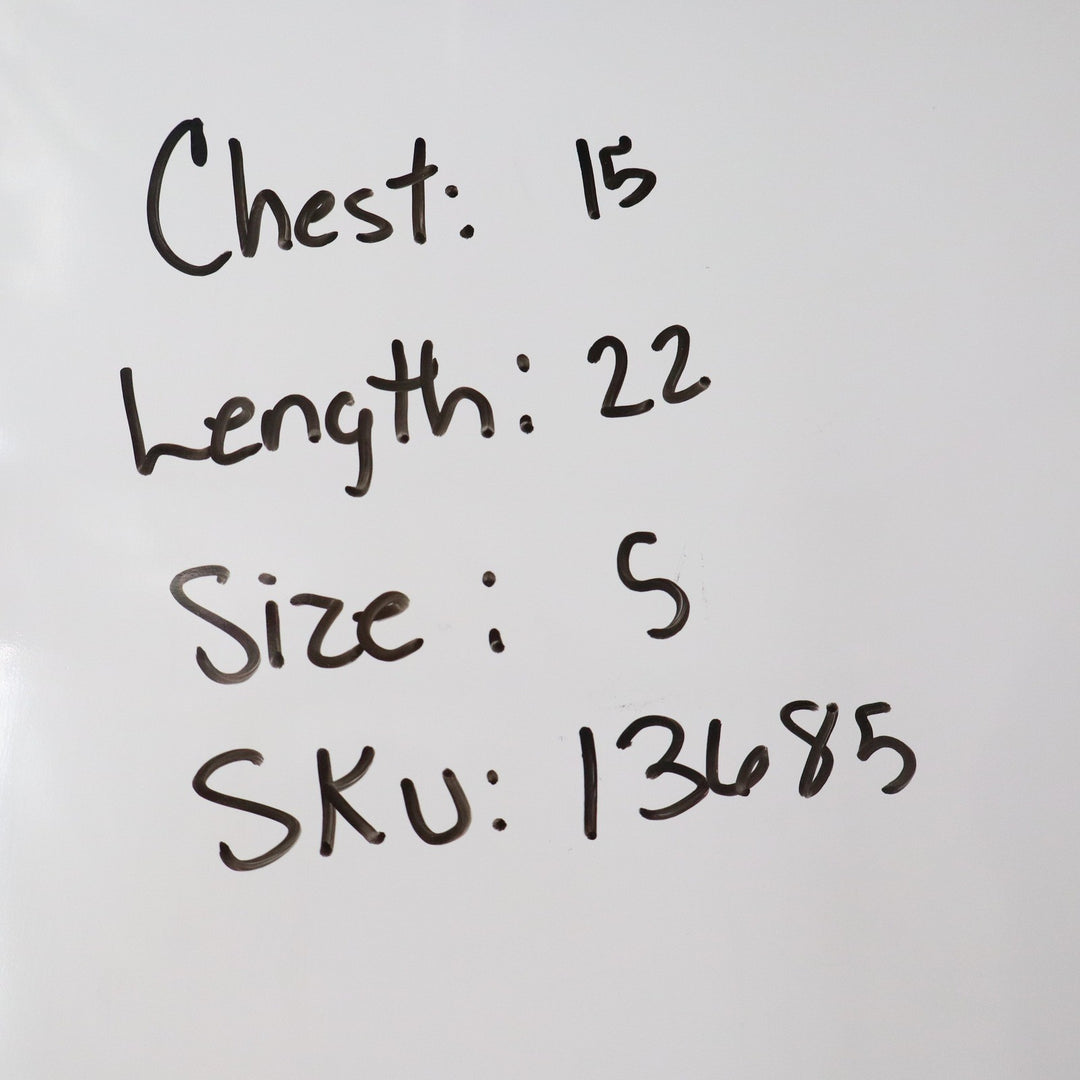 Chest: 15
Length: 22
Size: S
SKU: 13685